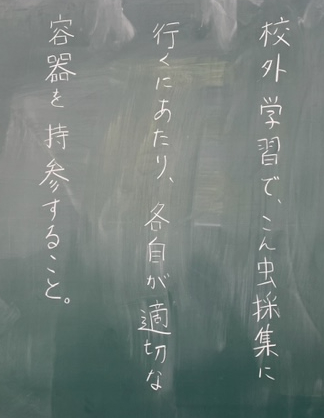 校外学習で、こん虫採集に
行くにあたり、各自が適切な
容器を持参すること。